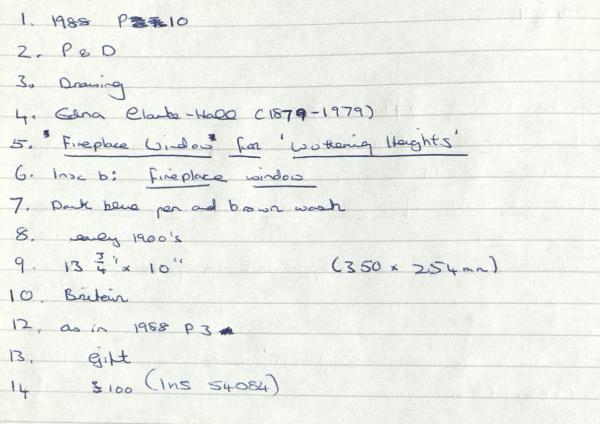 1. 1988 P 10
2. P & D
3. Drawing
4. Edna Clarke-Hall (1879-1979)
5. "Fireplace Window" for 'Wuthering Heights'
6. Insc b: fireplace window
7. Dark blue pen and brown wash
8. early 1900's
9. 13 3/4" x 10" (350 x 254mm)
10. Britain
12. as in 1988 P 3
13. gift
14 $100 (Ins 54084)